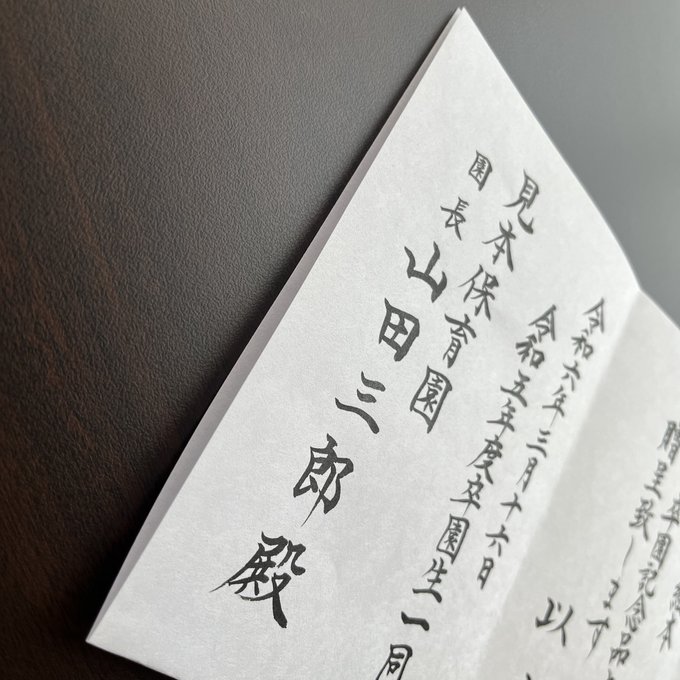 卒園記念品
贈呈致します
以
令和六年三月十六日
令和五年度卒園生一同
見本保育園
園長 山田三郎殿